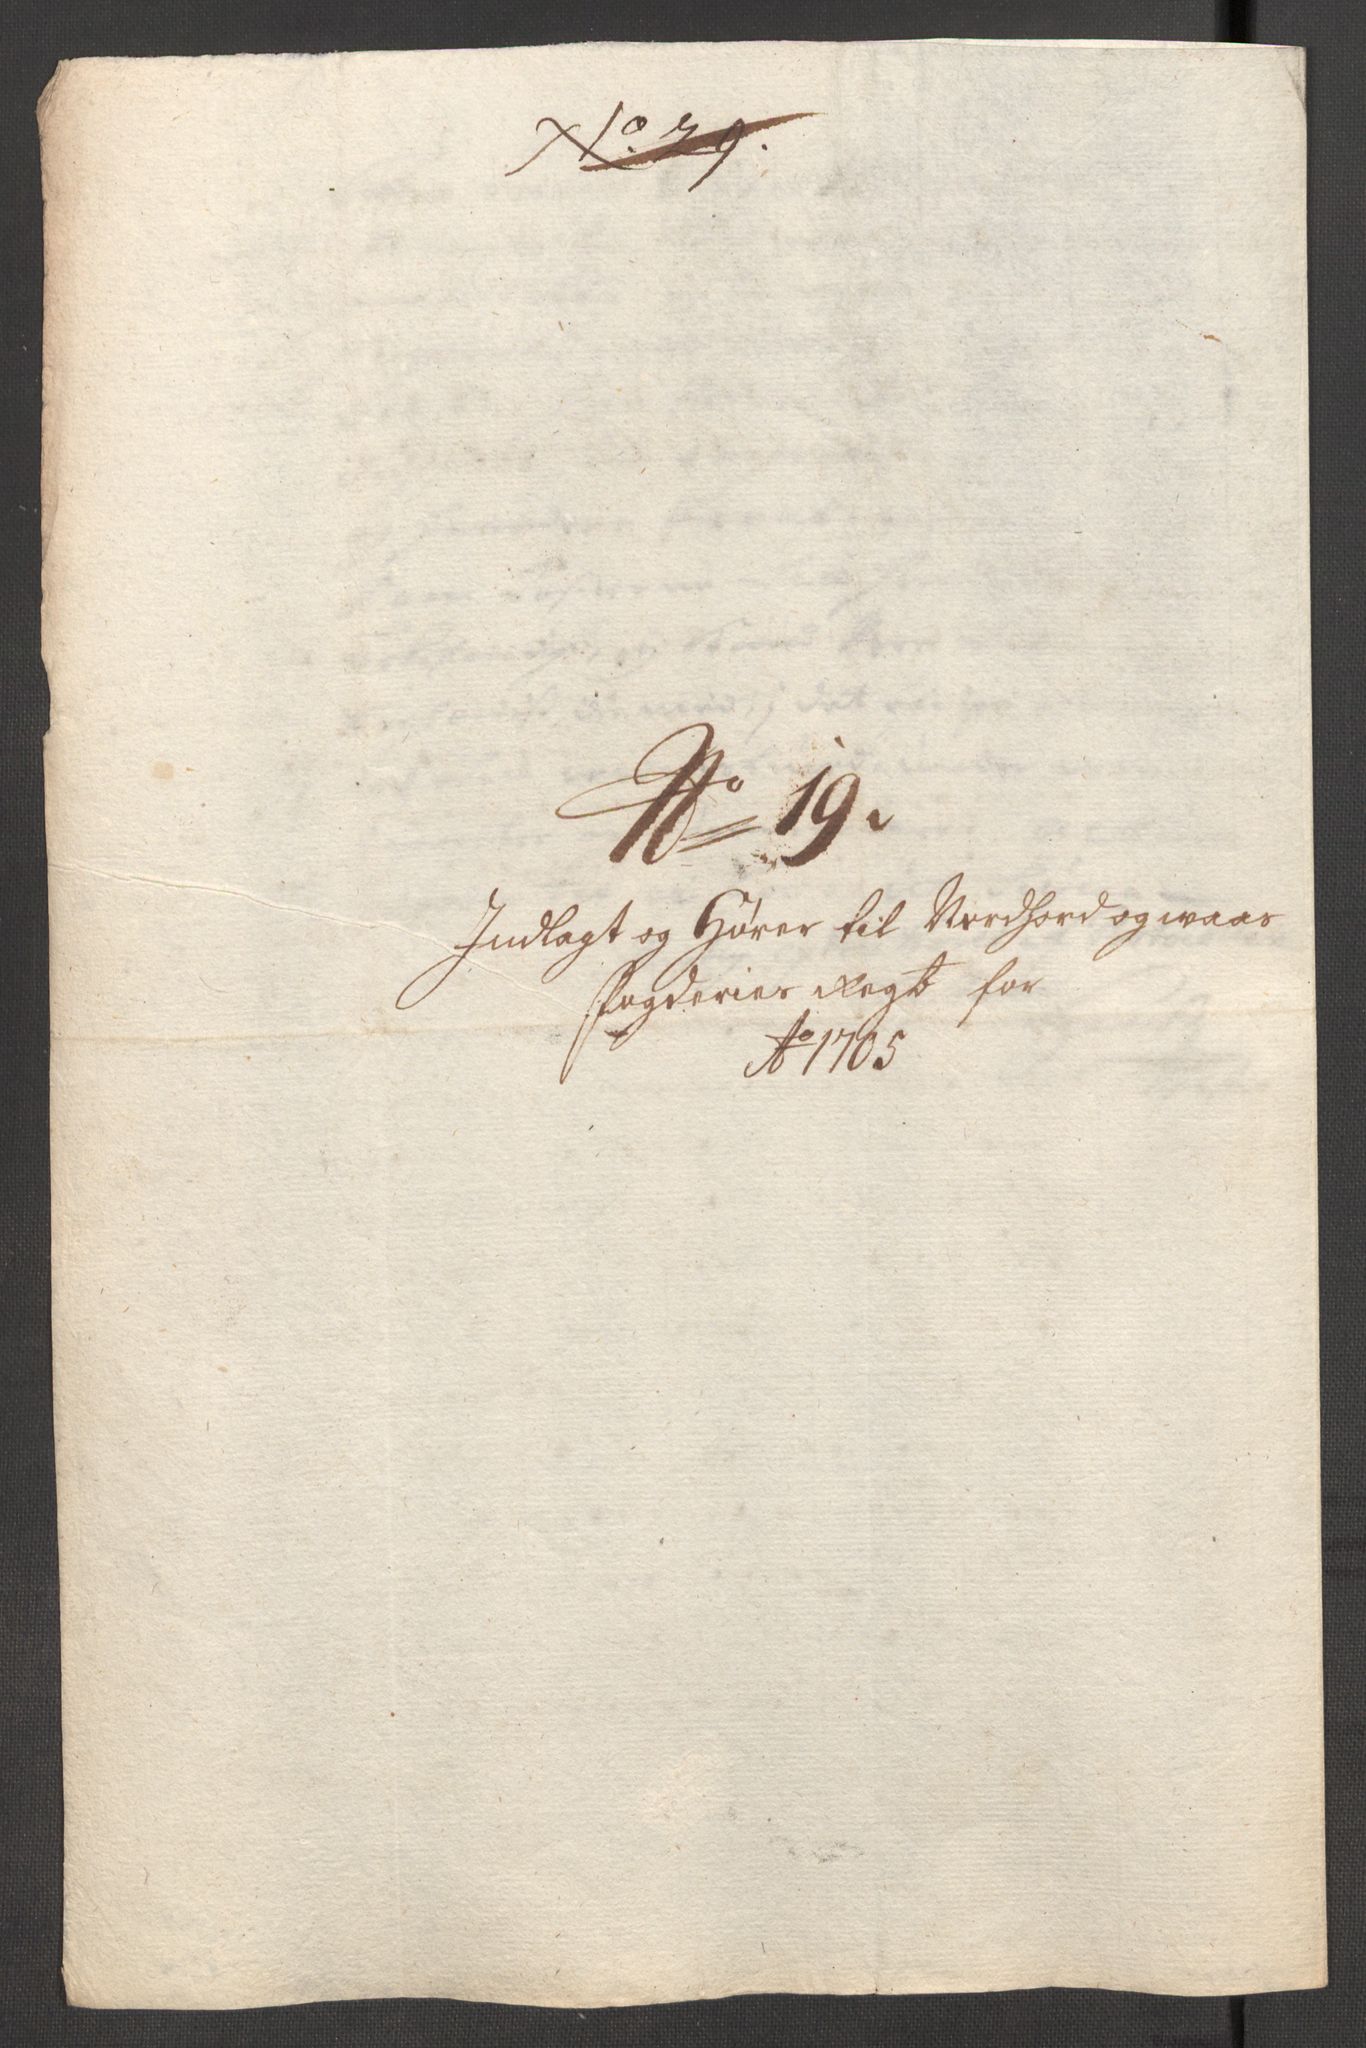 No. 29.
No 19.
Indlagt og Hører til Nordhord og waas
fogderies Regnb for
Ao 1705